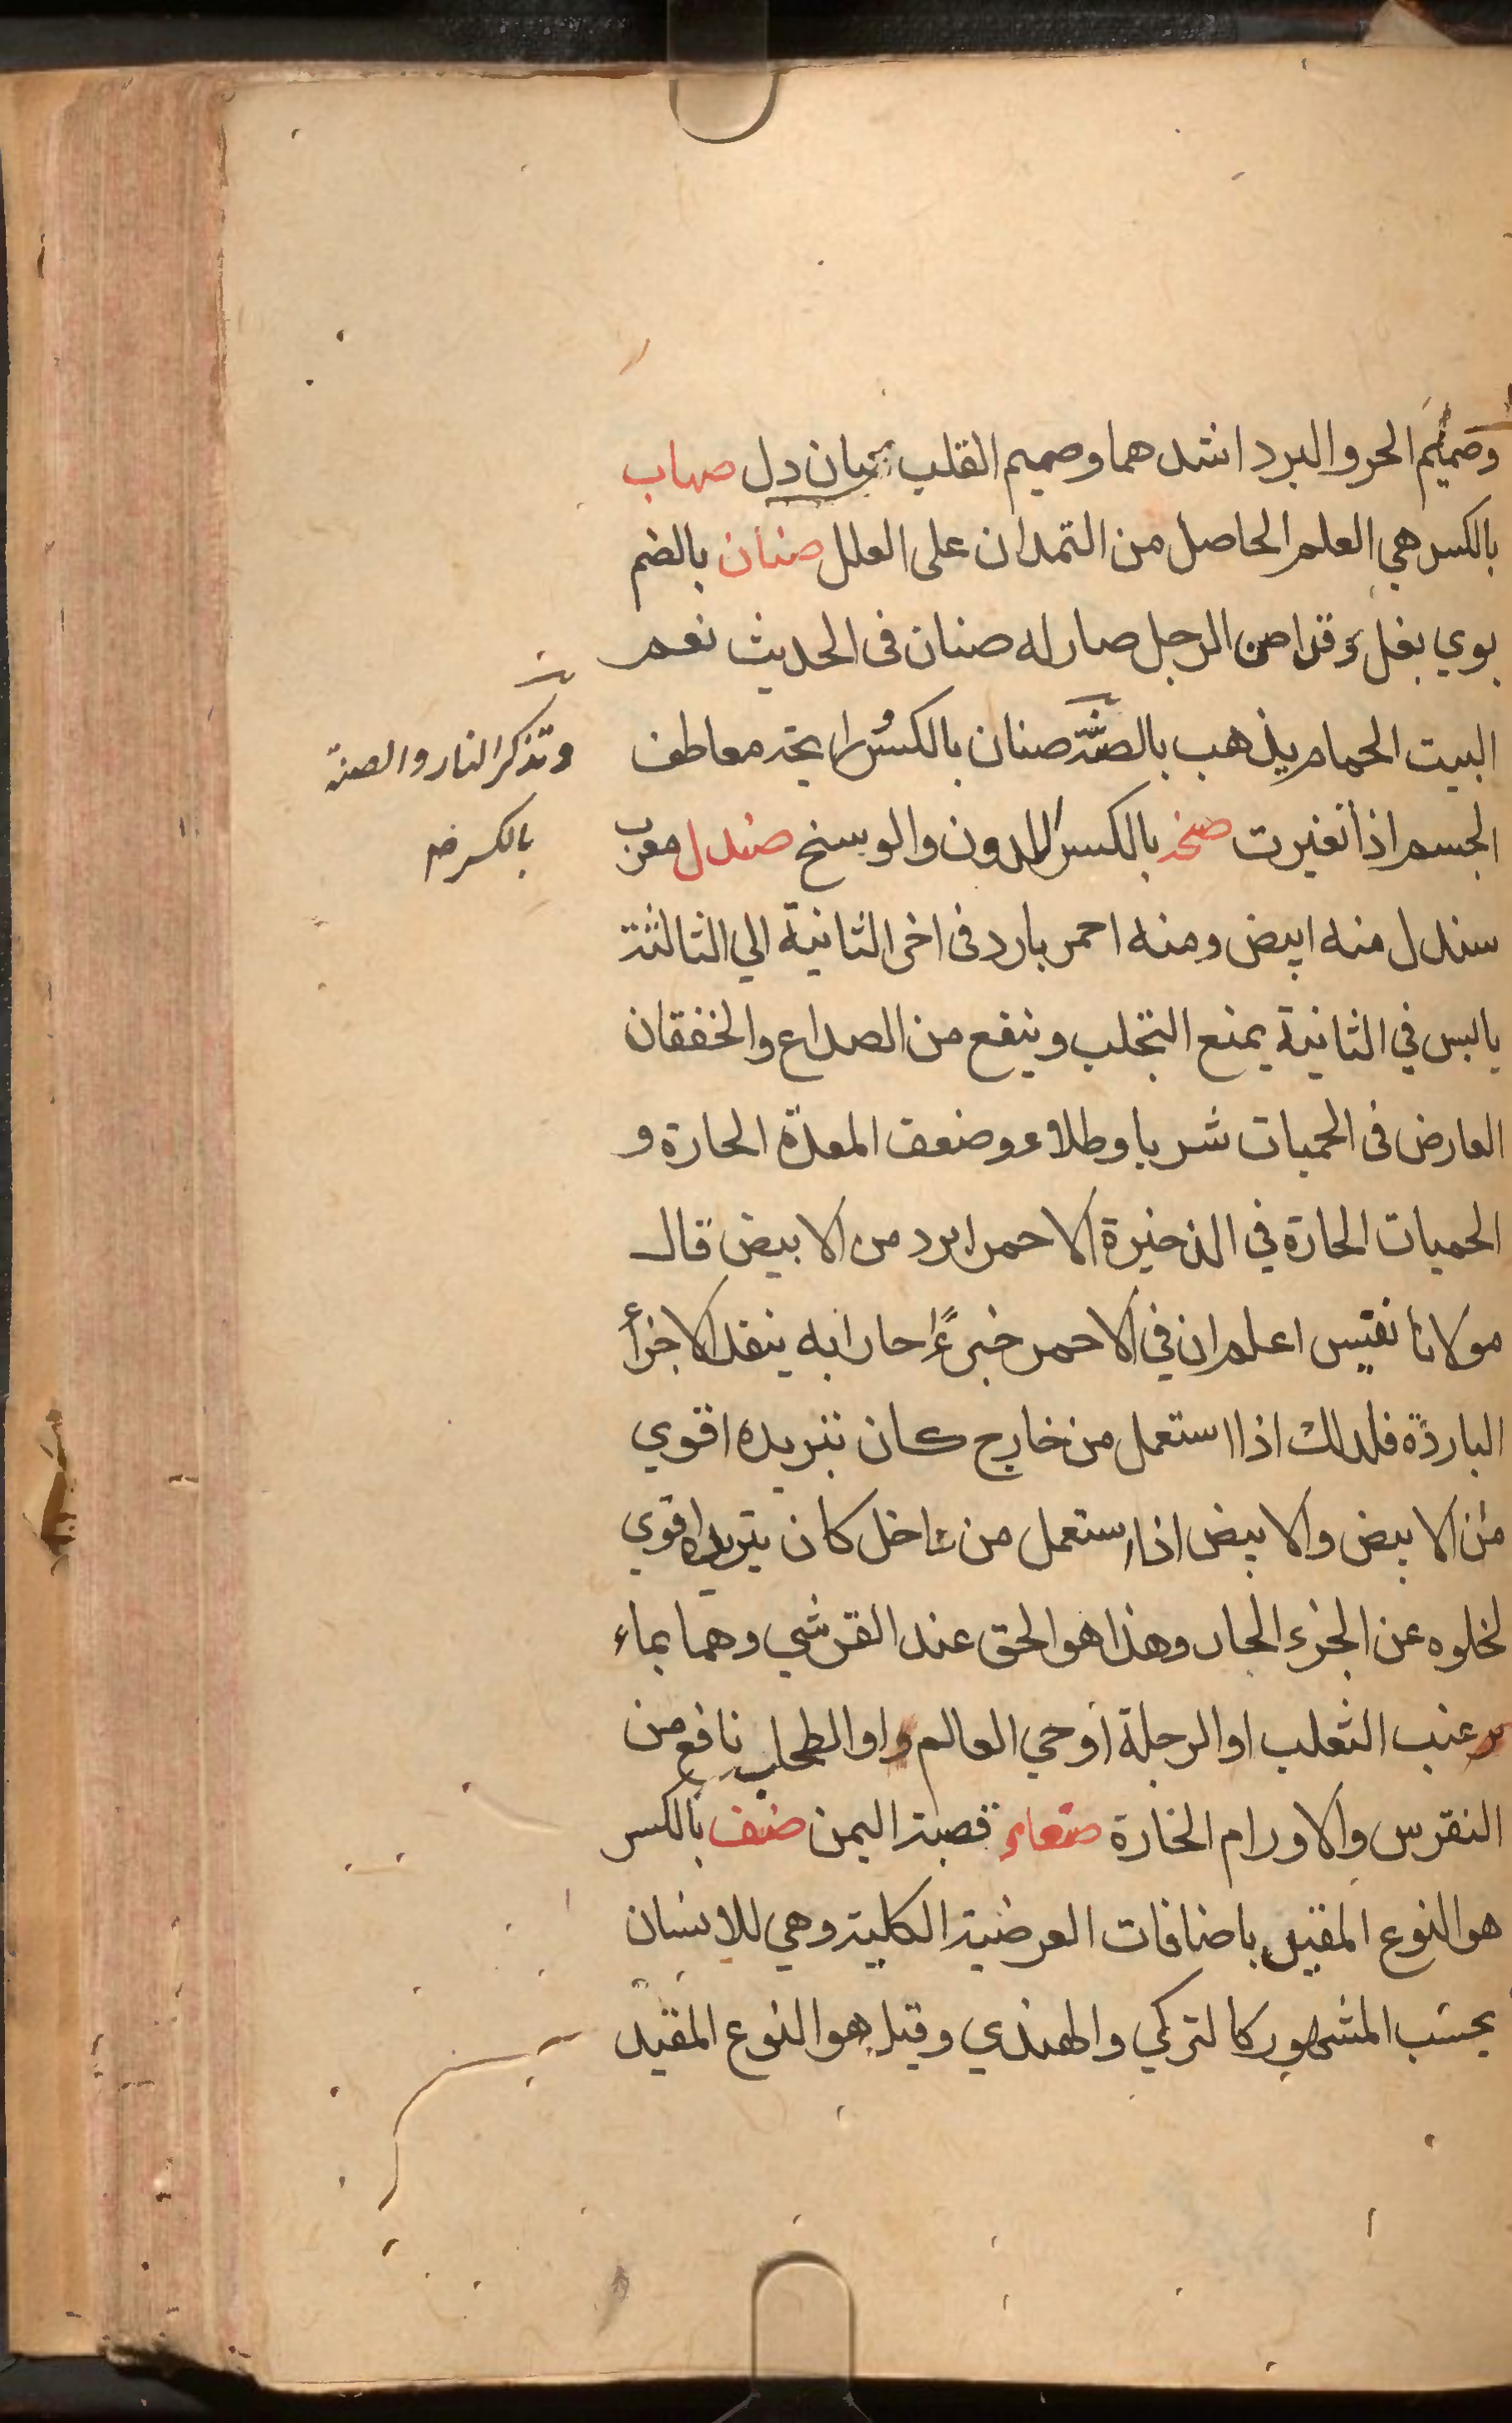 وصميم الحر والبرد اشدهما وصميم القلب بجبان دل صهاب
بالكسر هي العلم الحاصل من التمدان على العلل صنان بالضم
بوي بغل وقد اصن الرجل صار له صنان فى الحديث نعم
البيت الحمام يذهب بالصنة صنان بالكسر رايحة معاطف
وتذكر النار والصنة
بالكسر
الجسم اذا تغيرت بالكسر المدون والوسخ صندل معرب
سندل منه ابيض ومنه احمر بارد فى اخر الثانية الي الثالثة
يابس في الثانية يمنع التجلب وينفع من الصداع والخفقان
العارض فى الحميات شربا وطلاء وضعف المعدة الحارة و
الحميات الحارة في الذخيرة الاحمر ابرد من الابيض قال
مولانا نفيس اعلم ان في الاحمر جزءًا حارا به ينفد الاجزأ
الباردة فلدلك اذا استعمل من خارج كان تبريده اقوي
من الابيض والابيض اذا استعمل من داخل كان تبريده اقوي
لخلوه عن الجزء الحار وهذا هو الحق عند القرشي وهما بماء
عنب الثعلب او الرجلة او حي العالم او الطحلب نافع من
النقرس والاورام الحارة صنعاء قصبة اليمن صنف بالكسر
هو النوع المقيد باضافات العرضية الكلية وهي للانسان
بحسب المشهور كالتركي والهندي وقيل هو النوع المقيد